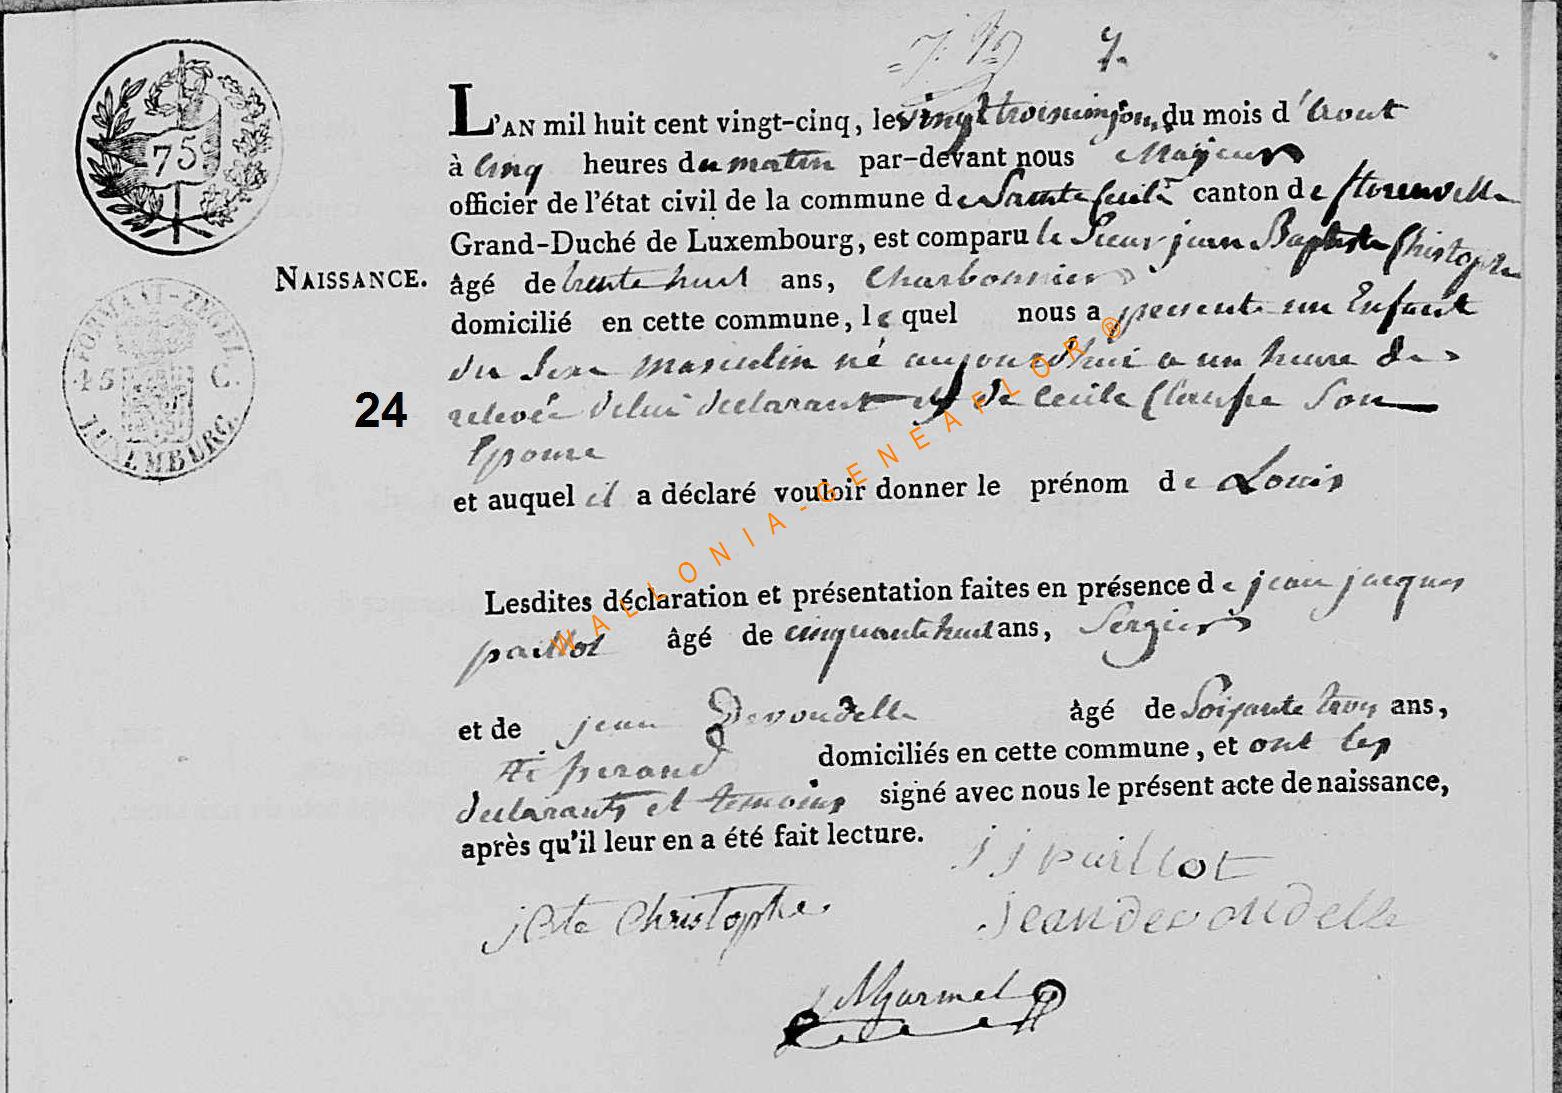 7.
L'AN mil huit cent vingt-cinq, le vingt trois du mois d'Aout
à cinq heures du matin par-devant nous Mayeur
officier de l'état civil de la commune de Sainte Cecile canton de florenville
Grand-Duché de Luxembourg, est comparu le Sieur jean Baptiste Christophe
NAISSANCE. âgé de trente huit ans, Charbonnier
domicilié en cette commune, lequel nous a presenté un Enfant
du Sexe masculin né aujourdhui a un heure de
24 relevée de lui declarant et de Cecile Son
Epouse
et auquel il a déclaré vouloir donner le prénom de Louis
Lesdites déclaration et présentation faites en présence de jean jacques
paillot âgé de cinquante huit ans, Sergier
et de jean Devoudelle âgé de Soixante troy ans,
domiciliés en cette commune, et ont les
declarants et temoins signé avec nous le présent acte de naissance,
après qu'il leur en a été fait lecture.
j j paillot
j Bte Christophe
jean devoudelle
75
FORMAAT-ZEGEL
45 C.
LUXEMBURG.
WALLONIA-GENEAFLOR®